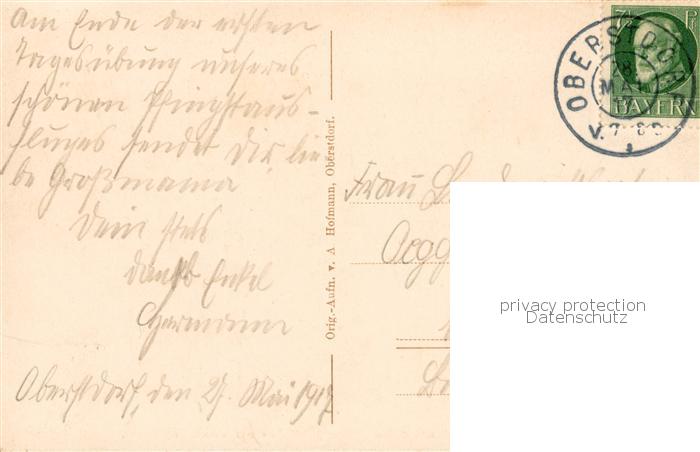 Am Ende der ersten
Tagesübung unseres
schönen Pfingstaus-
fluges sendet Dir, lie-
be Großmama
Dein stets
dankb Enkel
Hermann
Oberstdorf, den 27. Mai 1917
Orig.-Aufn. v. A Hofmann, Oberstdorf.
7½ Pf
BAYERN
OBERSTDORF
28
MAI
V. 7-8
Frau
privacy protection
Datenschutz